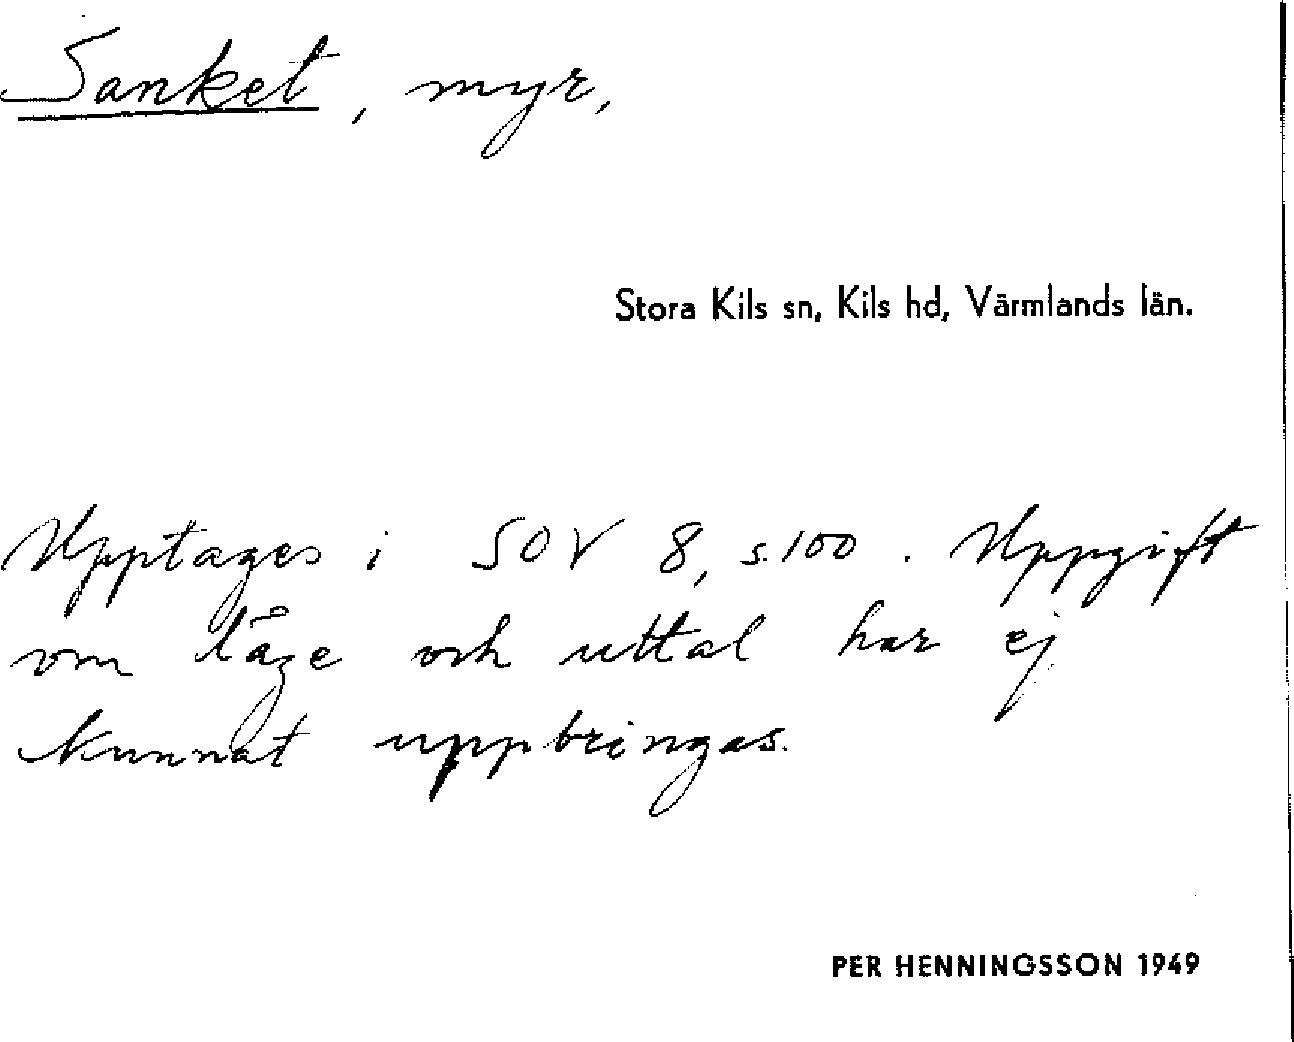 Sanket, myr,
Stora Kils sn, Kils hd, Värmlands län.
Upptages i SOV 8, s. 100. Uppgift
om läge och uttal har ej
kunnat uppbringas.
PER HENNINGSSON 1949